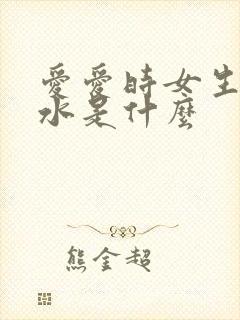 愛愛時女生
水是什麼
熊金超